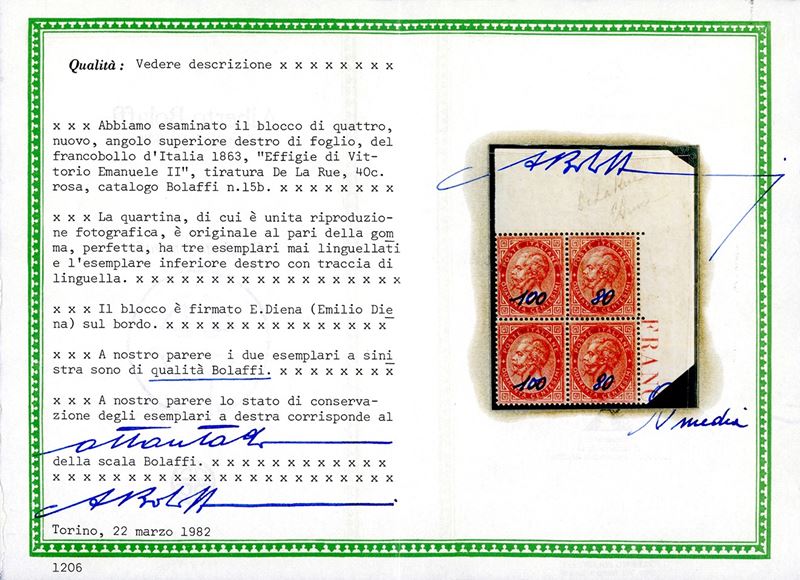 Qualità : Vedere descrizione x x x x x x x x
x x x Abbiamo esaminato il blocco di quattro,
nuovo, angolo superiore destro di foglio, del
francobollo d'Italia 1863, "Effigie di Vit-
torio Emanuele II", tiratura De La Rue, 40c.
rosa, catalogo Bolaffi n.15b. x x x x x x x x
x x x La quartina, di cui è unita riproduzio-
ne fotografica, è originale al pari della gom
ma, perfetta, ha tre esemplari mai linguellati
e l'esemplare inferiore destro con traccia di
linguella. x x x x x x x x x x x x x x x x x x
x x x Il blocco è firmato E.Diena (Emilio Die
na) sul bordo. x x x x x x x x x x x x x x x
x x x A nostro parere i due esemplari a sini
stra sono di qualità Bolaffi. x x x x x x x x
x x x A nostro parere lo stato di conserva-
zione degli esemplari a destra corrisponde al
ottanta
della scala Bolaffi. x x x x x x x x x x x x
x x x x x x x x x x x x x x x x x x x x x x x
A Bolaffi
Torino, 22 marzo 1982
1206
A Bolaffi
POSTE ITALIANE
POSTE ITALIANE
100
80
POSTE ITALIANE
POSTE ITALIANE
100
80
FRAN
R media